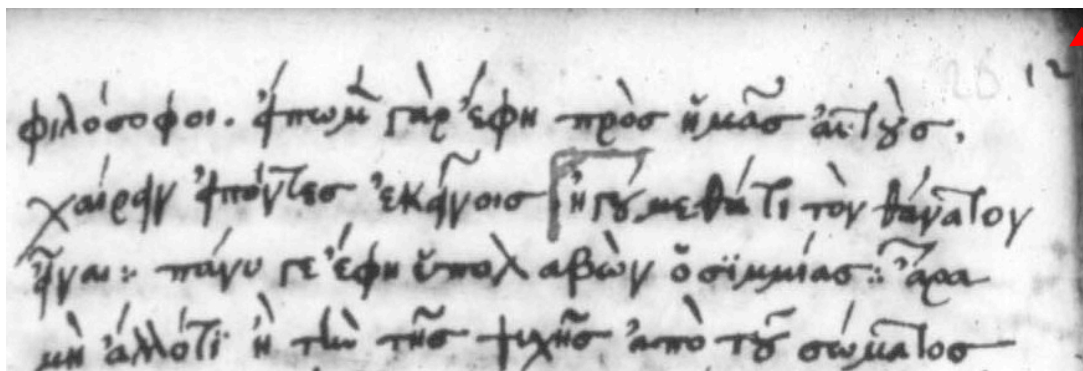 φιλόσοφοι. εἴπωμεν γὰρ ἔφη πρὸς ἡμᾶς αὐτοὺς,
χαίρειν εἰπόντες ἐκείνοις ἡγούμεθά τι τὸν θάνατον
εἶναι: πάνυ γε ἔφη ὑπολαβὼν ὁ σϊμμίας: ἆρα
μὴ ἄλλό τι ἢ τὴν τῆς ψυχῆς ἀπὸ τοῦ σώματος